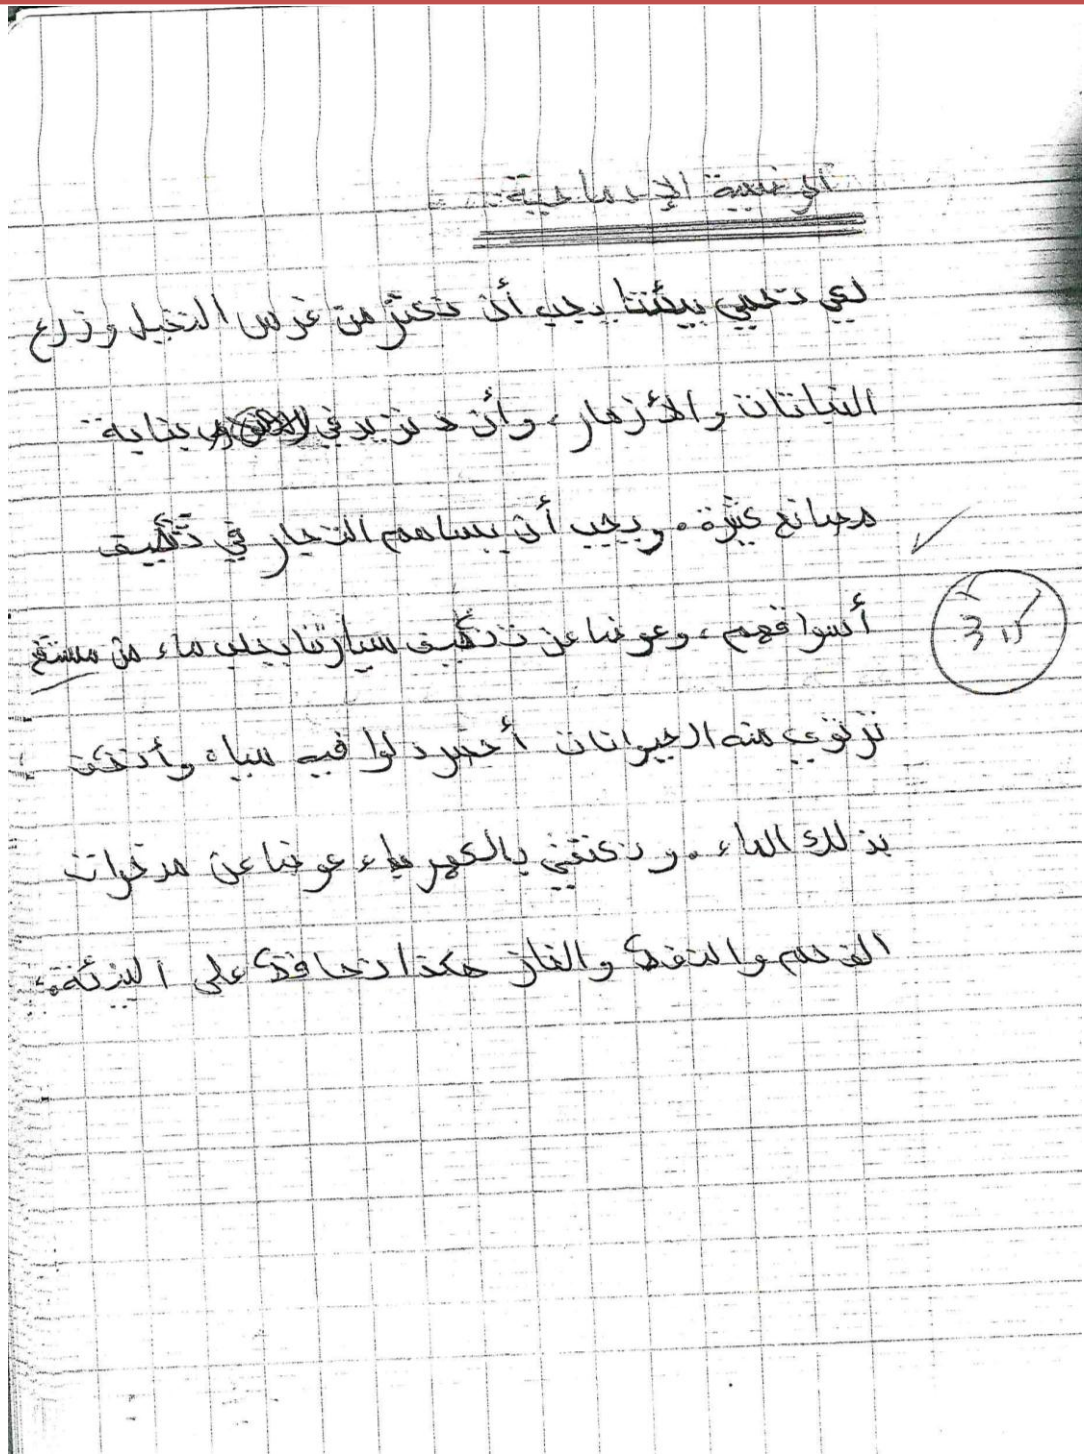 الوضعية الإدماجية:
لكي نحمي بيئتنا يجب أن نكثر من غرس النخيل وزرع
النباتات والأزهار، وأن لا نزيد في بناية
مصانع كثيرة. ويجب أن يساهم التجار في تنظيف
أسواقهم، وعوضا عن تنظيف سيارتنا بجلب ماء من مستنقع
ترتوي منه الحيوانات أحضر دلوا فيه مياه وأنظف
بذلك الماء. ونكتفي بالكهرباء عوضا عن مدخرات
الفحم والنفط والغاز هكذا نحافظ على البيئة.
3,5